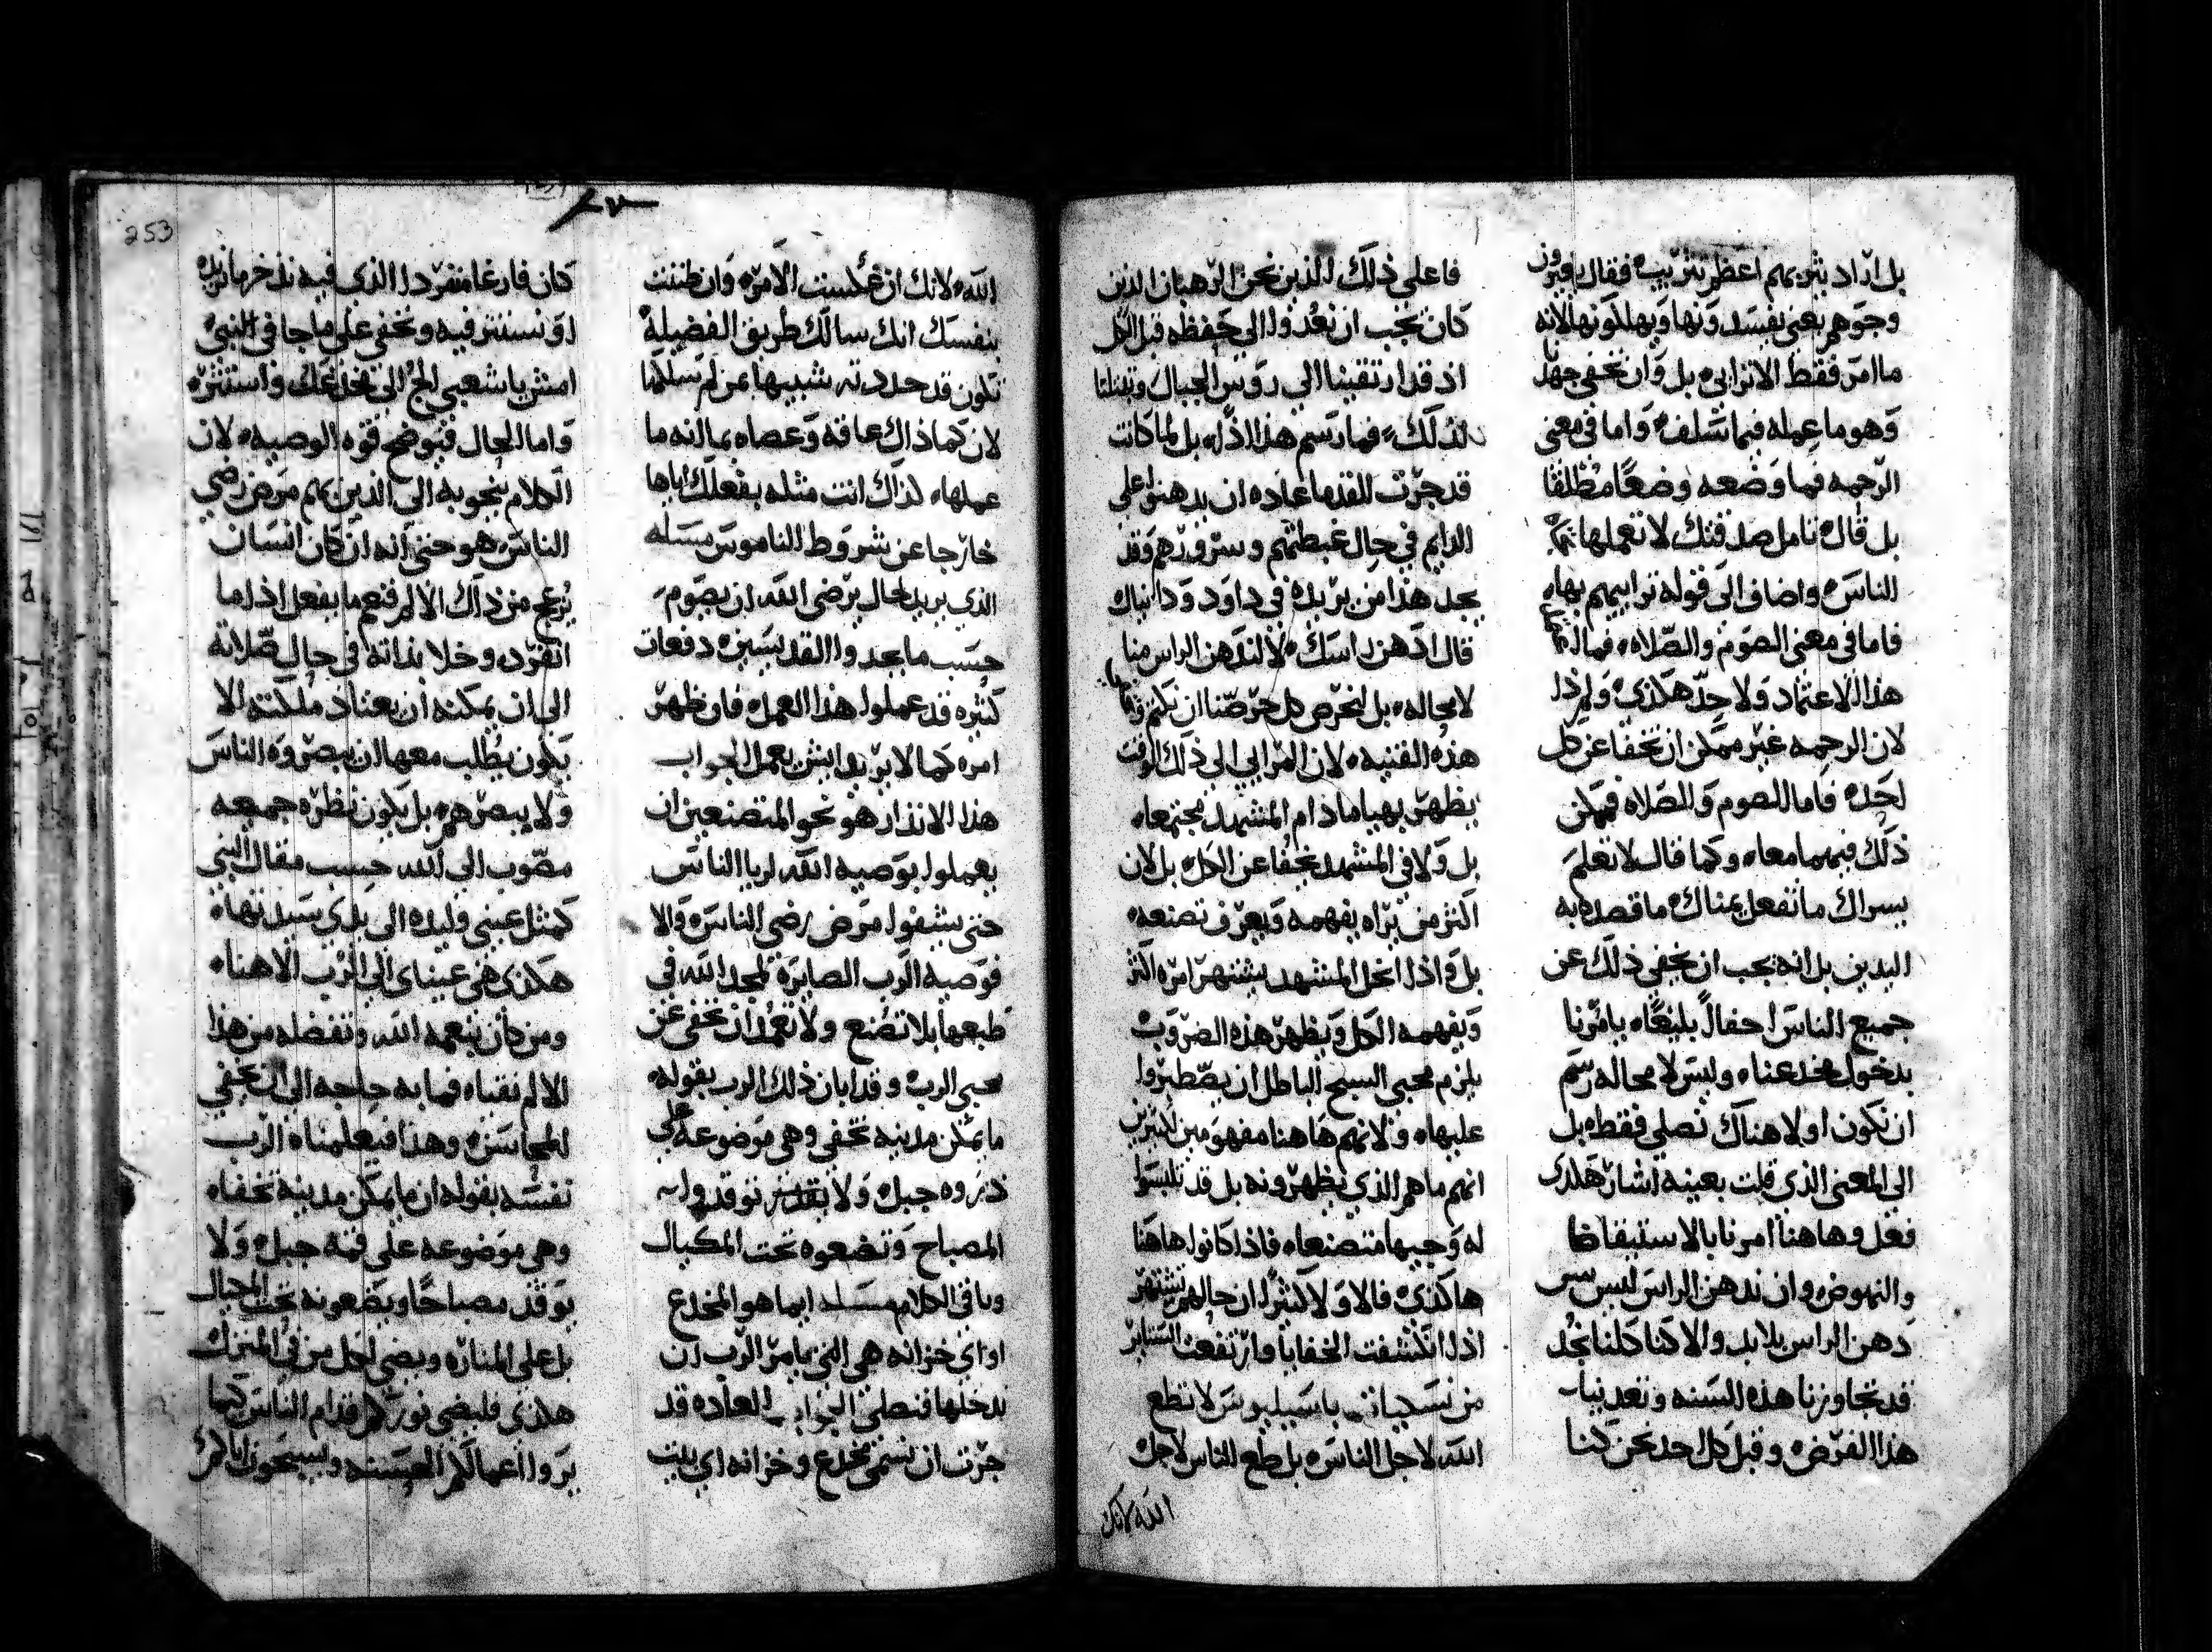 بل اراد يثربهم اعظم تثريب فقال يغيرون
وجوههم يعني يفسدونها ويهلكونها لانه
ما امر فقط الا نرايي بل وان نخفي جهدنا
وهو ما عمله فيما سلف واما في معنى
الرحمه فما وضعه وضعًا مطلقًا
بل قال تامل صدقتك لا تعملها قدام
الناس واضاف الى قوله تراييهم بها
فاما في معنى الصوم والصلاه فما
هذا الاعتماد ولا حدّ هكذى ولم ذا
لان الرحمه غير ممكن ان تخفا عن كل
احد فاما الصوم والصلاه فممكن
ذلك فيهما معا وكما قال لا تعلم
يسراك ما تفعل يمناك ما قصد به
اليدين بل انه يجب ان نخفي ذلك عن
جميع الناس احفالاً بليغًا يامرنا
بدخول مخدعنا وليس لا محاله رسم
ان نكون اولا هناك نصلي فقط بل
الى المعنى الذي قلت بعينه اشار هكذى
فعل وهاهنا امرنا بالاستيقاظ
والنهوض وان ندهن الراس ليس
دهن الراس بلا بد والا كنا كلنا نجد
قد تجاوزنا هذه السنه وتعدينا
هذا الفرض وقبل كل احد نحن كنا
فاعلي ذلك الذين نحن الرهبان الذين
كان يجب ان نعدوا الى حفظه قبل الكل
اذ قد ارتقينا الى روس الجبال وتفننا
لذلك فما رسم هذا الراى بل لما كانت
قد جرت للقدما عاده ان يدهنوا على
الدايم في حال غبطتهم وسرورهم وقد
يجد هذا من يريده في داود ودانيال
قال ادهن راسك لا لندهن الراس منا
لا محاله بل لنحرص كل حرصنا ان نكتم
هذه القنيه لان المرايي الى ذلك الوقت
يظهر بهيا ما دام المشهد مجتمعا
بل ولا في المشهد يخفا عن الكل بل لان
اكثر من يراه يفهمه ويعرف تصنعه
بل واذا انحل المشهد يشتهر امره اكثر
ويفهمه الكل ويظهر هذه الضروب
يلزم محبي السبح الباطل ان يصطبروا
عليها ولانهم هاهنا مفهومين لكثيرين
انهم ما هم الذي يظهرونه بل قد تلبسوا
له وجيها متصنعا فاذا كانوا هاهنا
هاكذى فالاولا كثيرًا ان حالهم تشتهر
اذا انكشفت الخفايا وارتفعت الستاير
من لا تطع
الله لاجل الناس بل طع الناس لاجل
الله لانك
الله لانك ان عكست الامر وان ظننت
بنفسك انك سالك طريق الفضيلة
تكون قد حددته شبيها بمن لم يسلكها
لان كما ذاك عاقه وعصاه بما انه ما
عملها لذاك انت مثله بفعلك اياها
خارجا عن شروط الناموس مسله
الذي يريد لحال يرضى الله ان يصوم
حسب ما يجد واالقديسين دفعات
كثيره قد عملوا هذا العمل فان ظهر
امره كما لا يريد ايش يعمل الجواب
هذا الانذار هو نحو المتصنعين ان
يعملوا بوصيه الله لريا الناس
حتى يشفوا مرض رضى الناس والا
فوصيه الرب الصايره لمجد الله في
طبعها بلا تصنع ولا تعمد ان تخفى عن
محبي الرب وقد ابان ذلك الرب بقوله
ما يمكن مدينه تخفى وهي موضوعه على
ذروه جبل ولا يقدر توقدوا
المصباح وتضعوه تحت المكيال
وباقي الكلام مسله ايما هو المخدع
او اي خزانه هي التي يامر الرب ان
ندخلها فنصلي الجواب العاده قد
جرت ان نسمي مخدع وخزانه اي بيت
كان فارغا متفردا الذي فيه نذخر ما نريده
او نستتر فيه ونخفي على ما جا في النبي
امش يا شعبي الج الى مخدعك واستتر
واما الحال فتوضح قوه الوصيه لان
الكلام ينحو به الى الذين بهم مرض رضى
الناس هو حتى انه ان كان انسان
يزعج من ذاك الالم فنعم ما يفعل اذا ما
انفرد وخلا بذاته في حال صلاته
الى ان يمكنه ان يعتاد ملكته الا
يكون يطلب معها ان يبصروه الناس
ولا يبصرهم بل يكون نظره جميعه
مصوب الى الله حسب مقال النبي
كمثل عيني وليده الى يدي سيدتها
هكذى هي عيناي الى الرب الاهنا
ومن كان بنعمه الله وتفضله من هذا
الالم نقيا فما به حاجه الى ان يخفي
المحاسن وهذا فيعلمناه الرب
نفسه بقوله ان ما يمكن مدينه تخفا
وهي موضوعه على قمه جبل ولا
يوقد مصباحًا ويضعونه تحت المكيال
بل على المناره ويضي لكل من في المنزل
هكذى فليضي نوركم قدام الناس كيما
يروا اعمالكم الحسنه ويسبحون اباكم
253